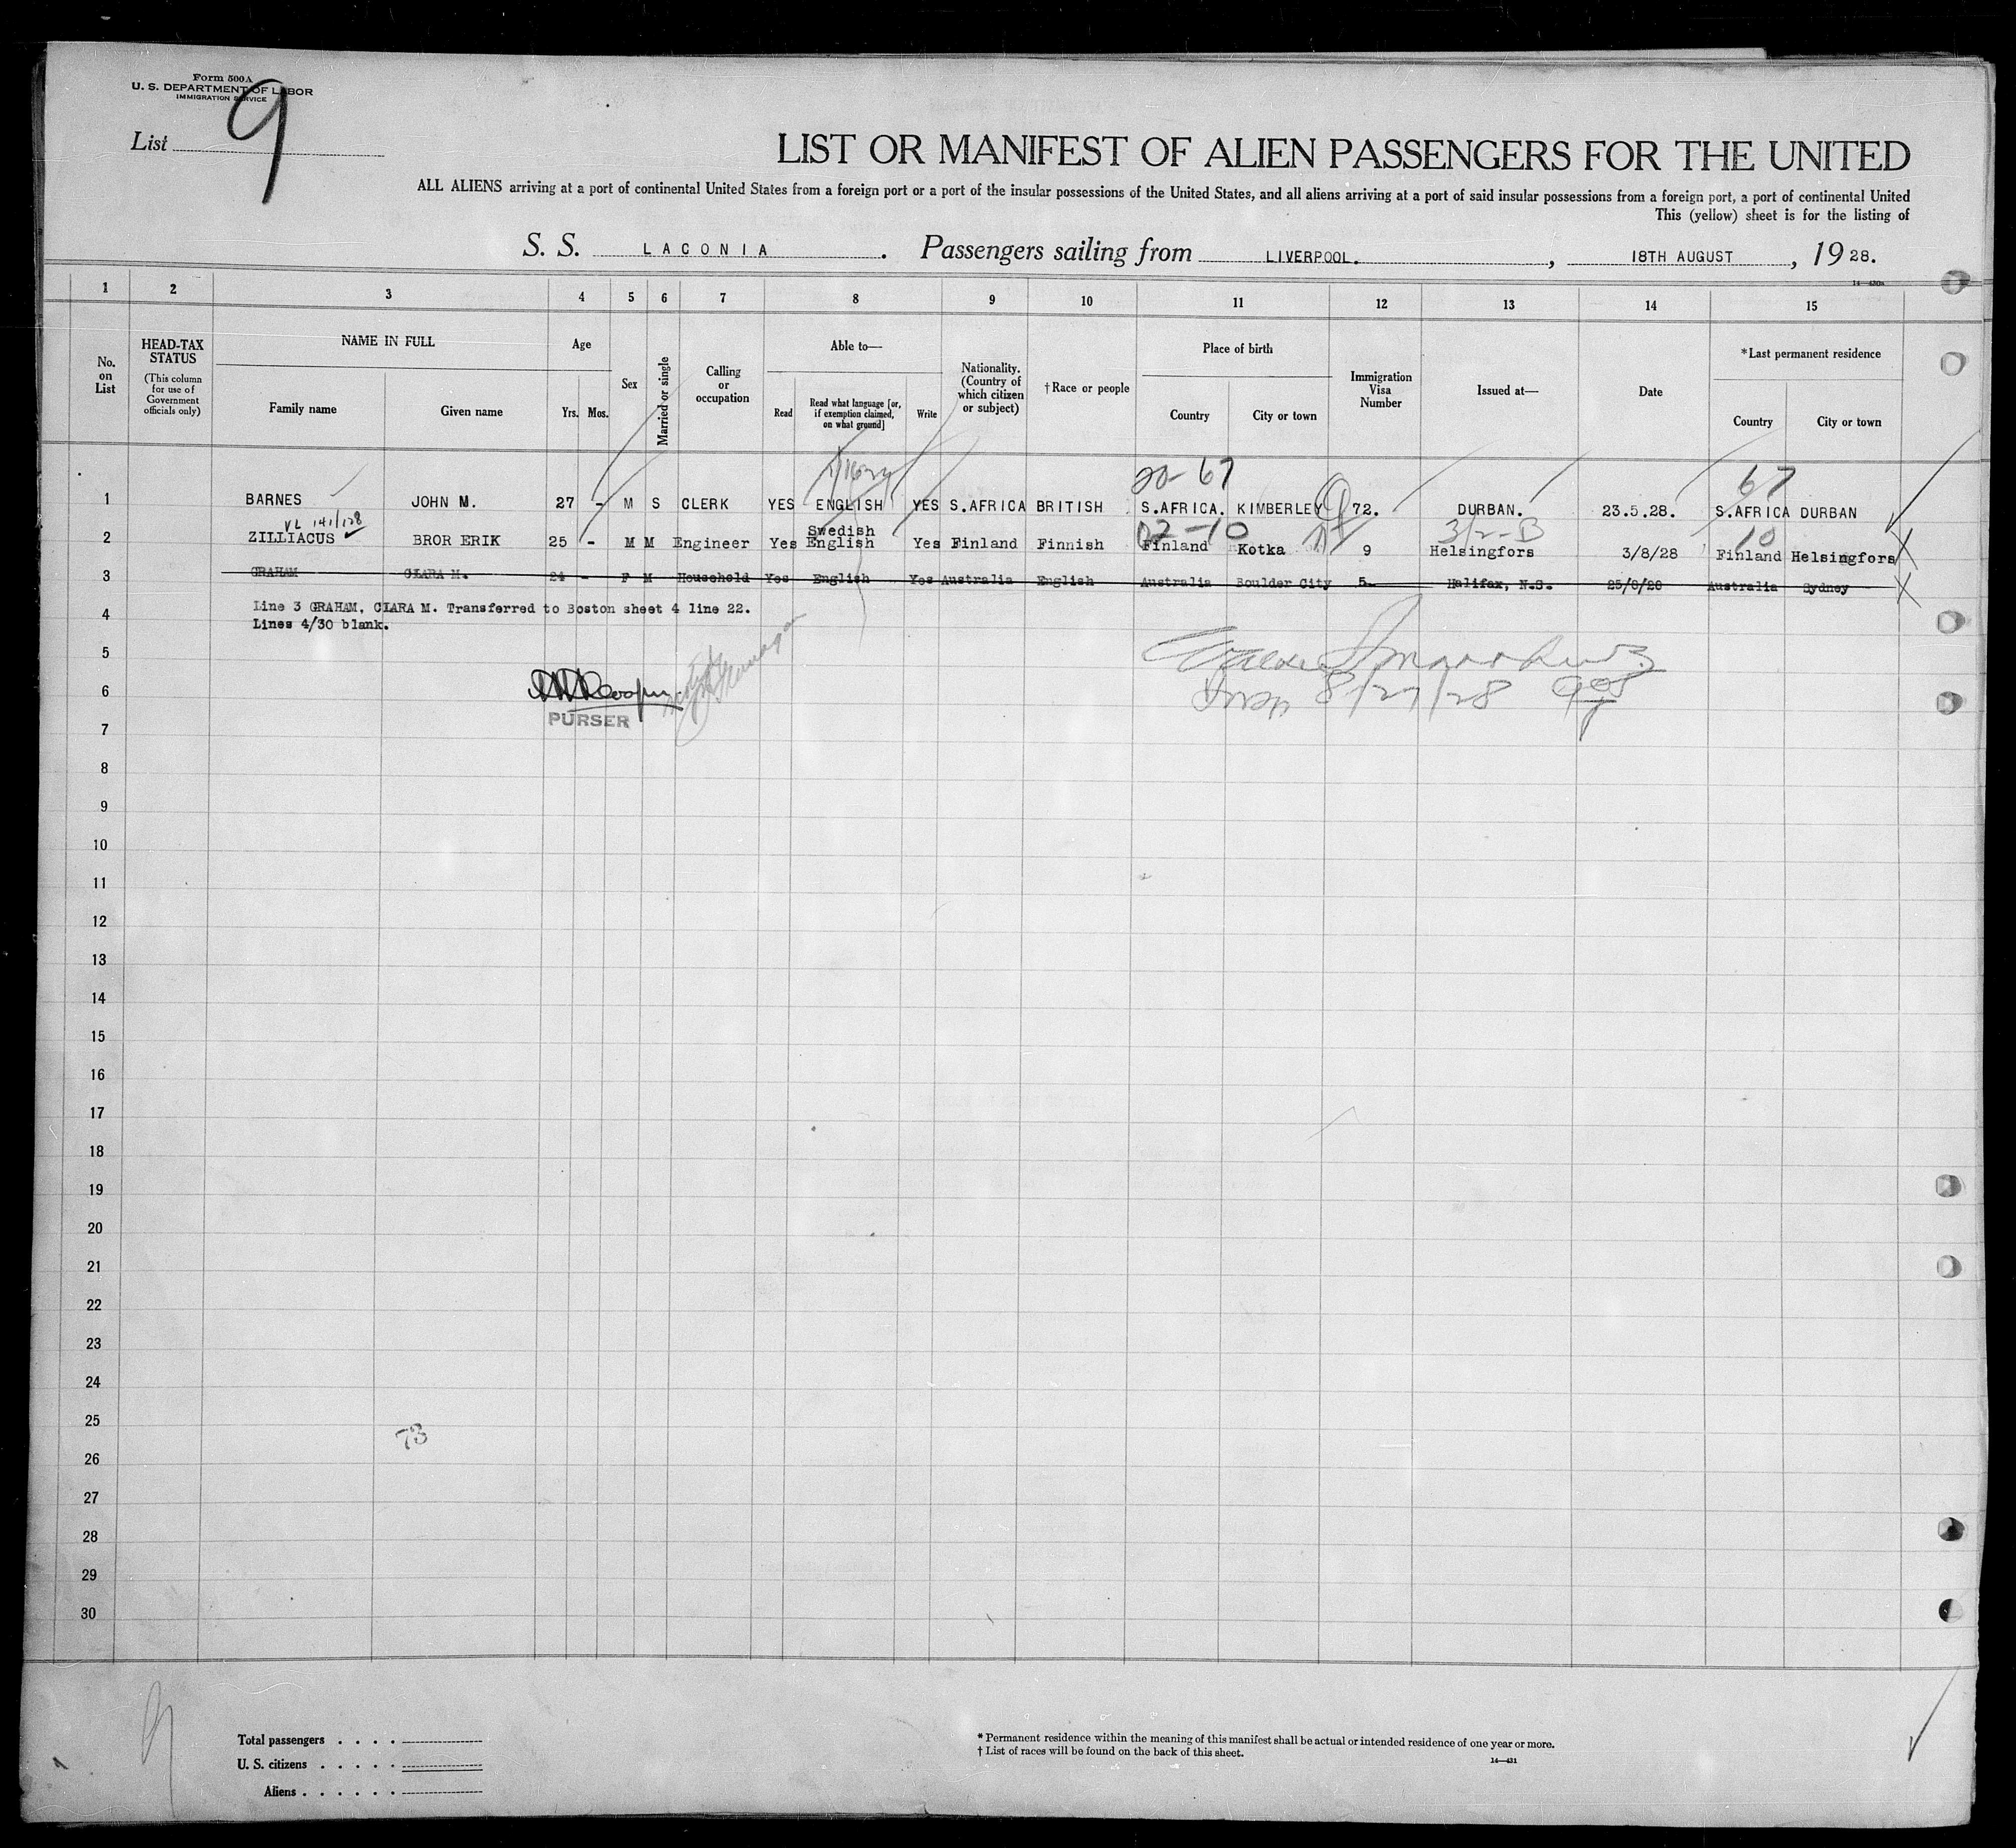 Form 500A
U. S. DEPARTMENT OF LABOR
IMMIGRATION SERVICE
List 9
LIST OR MANIFEST OF ALIEN PASSENGERS FOR THE UNITED
ALL ALIENS arriving at a port of continental United States from a foreign port or a port of the insular possessions of the United States, and all aliens arriving at a port of said insular possessions from a foreign port, a port of continental United
This (yellow) sheet is for the listing of
S. S. LACONIA . Passengers sailing from LIVERPOOL. , 18TH AUGUST , 19 28.
1 2 3 4 5 6 7 8 9 10 11 12 13 14 15
No. on List
HEAD-TAX STATUS
(This column for use of Government officials only)
NAME IN FULL
Family name
Given name
Age
Yrs. Mos.
Sex
Married or single
Calling or occupation
Able to—
Read
Read what language [or, if exemption claimed, on what ground]
Write
Nationality. (Country of which citizen or subject)
†Race or people
Place of birth
Country
City or town
Immigration Visa Number
Issued at—
Date
*Last permanent residence
Country
City or town
20-67 67
1 BARNES JOHN M. 27 - M S CLERK YES ENGLISH YES S.AFRICA BRITISH S.AFRICA. KIMBERLEY 72. DURBAN. 23.5.28. S.AFRICA DURBAN
VL 141/128 Swedish 02-10 3/2-B 10
2 ZILLIACUS BROR ERIK 25 - M M Engineer Yes English Yes Finland Finnish Finland Kotka 9 Helsingfors 3/8/28 Finland Helsingfors
3 GRAHAM CLARA M. 24 - F M Household Yes English Yes Australia English Australia Boulder City 5 Halifax, N.S. 25/8/28 Australia Sydney
4 Line 3 GRAHAM, CLARA M. Transferred to Boston sheet 4 line 22.
Lines 4/30 blank.
5
6 Insp 8/27/28
PURSER
7
8
9
10
11
12
13
14
15
16
17
18
19
20
21
22
23
24
25 73
26
27
28
29
30
9
Total passengers . . . .
U. S. citizens . . . . .
Aliens . . . . . .
* Permanent residence within the meaning of this manifest shall be actual or intended residence of one year or more.
† List of races will be found on the back of this sheet.
14—431